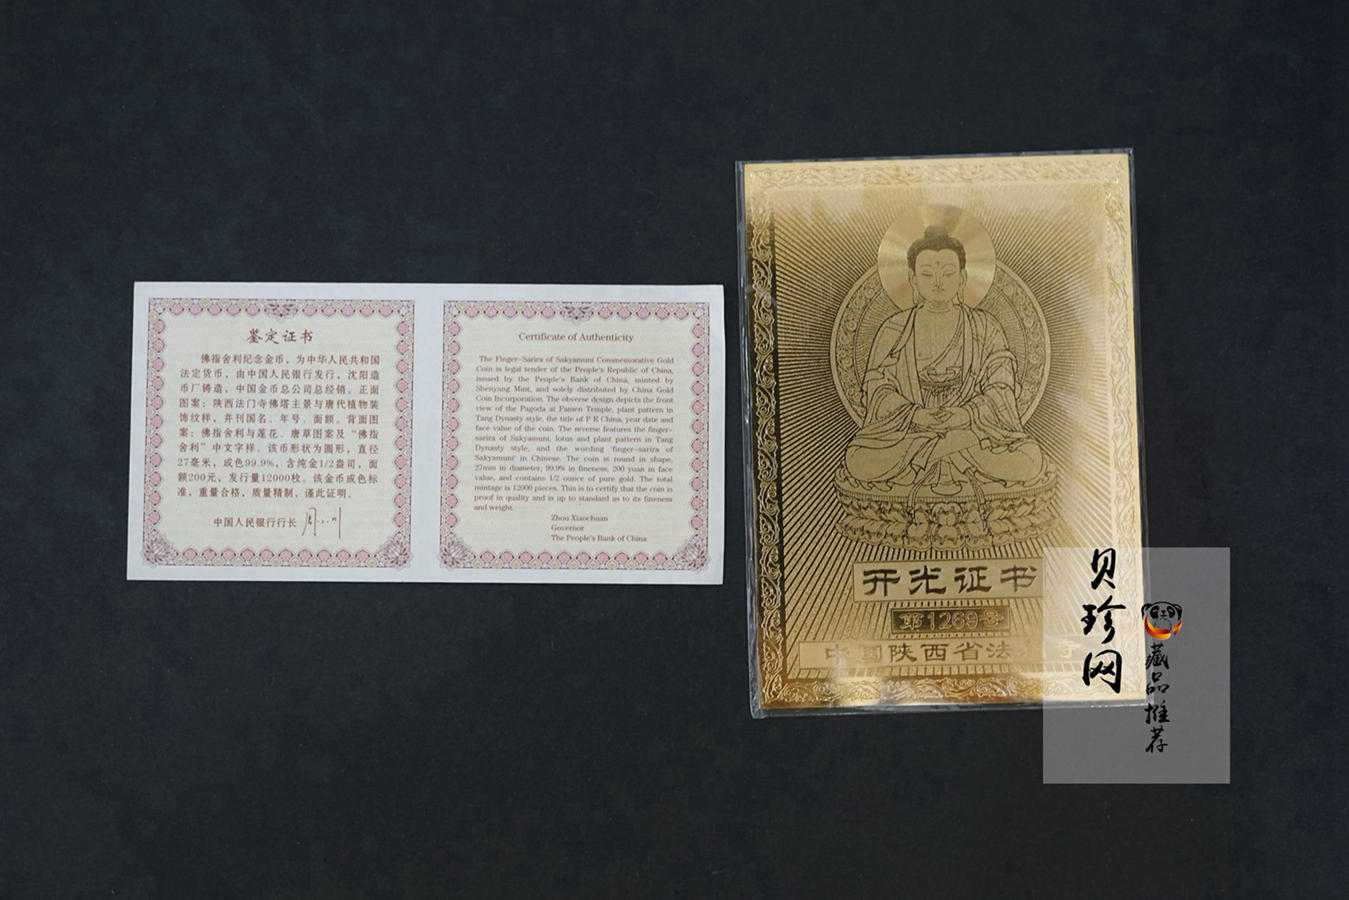 鉴定证书
佛指舍利纪念金币，为中华人民共和国
法定货币，由中国人民银行发行，沈阳造
币厂铸造，中国金币总公司总经销。正面
图案：陕西法门寺佛塔主景与唐代植物装
饰纹样，并刊国名、年号、面额。背面图
案：佛指舍利与莲花、唐草图案及“佛指
舍利”中文字样。该币形状为圆形，直径
27毫米，成色99.9%，含纯金1/2盎司，面
额200元，发行量12000枚。该金币成色标
准，重量合格，质量精制，谨此证明。
中国人民银行行长
Certificate of Authenticity
The Finger-Sarira of Sakyamuni Commemorative Gold
Coin is legal tender of the People's Republic of China,
issued by the People's Bank of China, minted by
Shenyang Mint, and solely distributed by China Gold
Coin Incorporation. The obverse design depicts the front
view of the Pagoda at Famen Temple, plant pattern in
Tang Dynasty style, the title of P R China, year date and
face value of the coin. The reverse features the finger-
sarira of Sakyamuni, lotus and plant pattern in Tang
Dynasty style, and the wording 'finger-sarira of
Sakyamuni' in Chinese. The coin is round in shape,
27mm in diameter, 99.9% in fineness, 200 yuan in face
value, and contains 1/2 ounce of pure gold. The total
mintage is 12000 pieces. This is to certify that the coin is
proof in quality and is up to standard as to its fineness
and weight.
Zhou Xiaochuan
Governor
The People's Bank of China
开光证书
第1269号
中国陕西省法 寺
贝珍网
藏品推荐